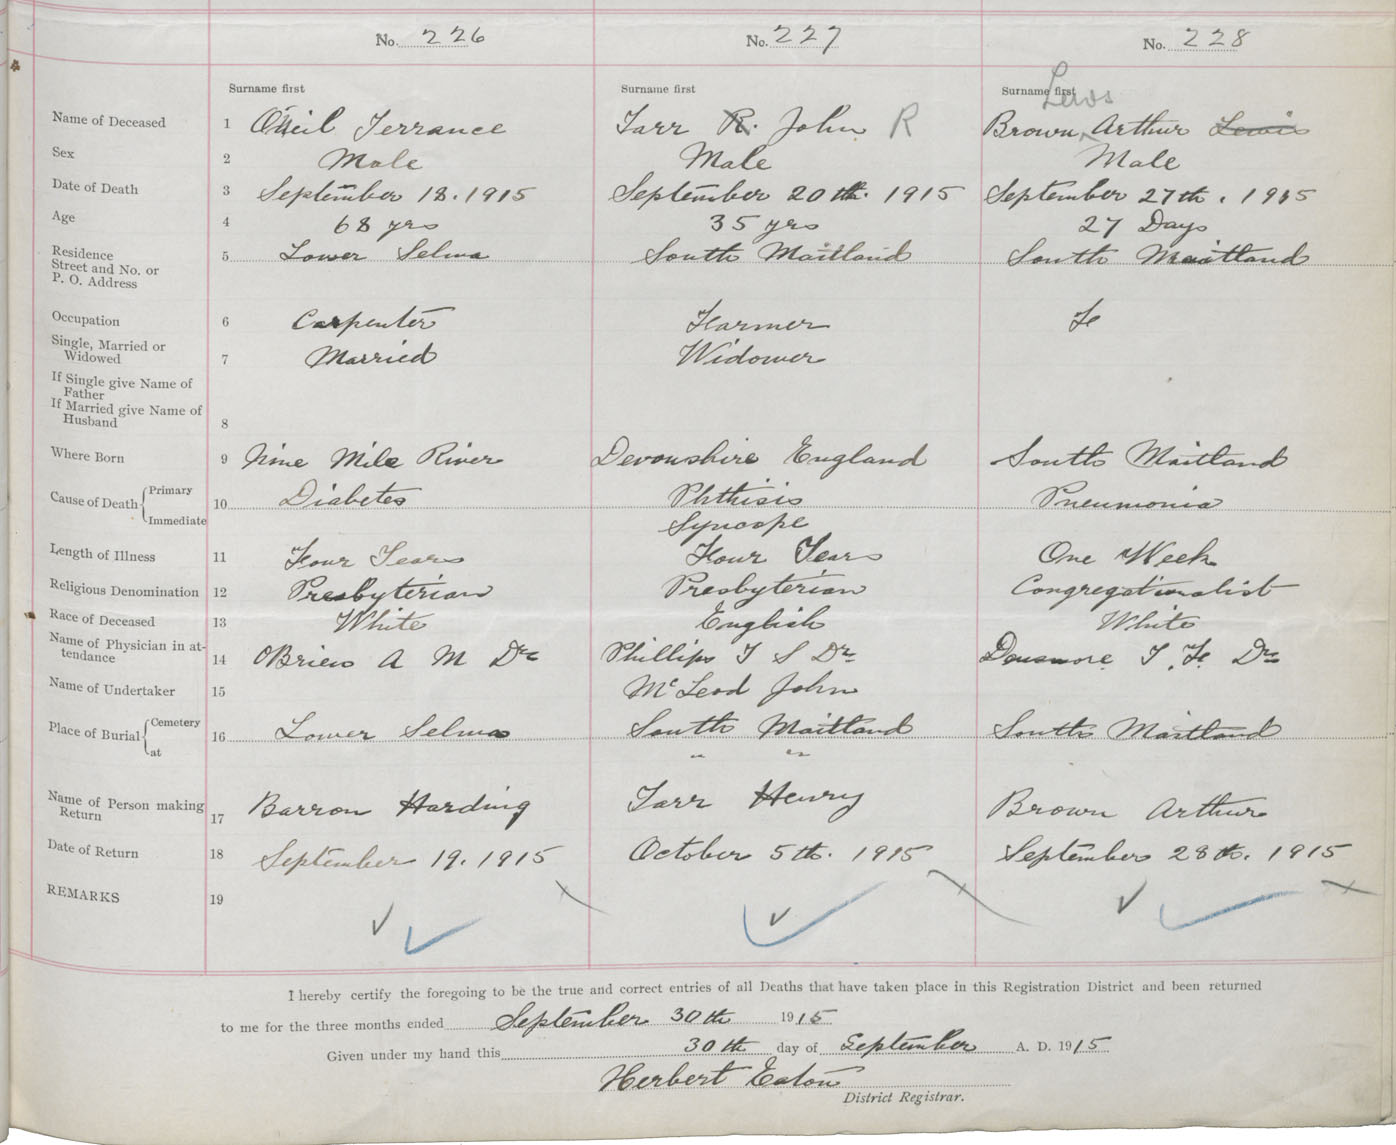 No. 226 No. 227 No. 228
Surname first Surname first Surname first
Lewis
Name of Deceased 1 O'Neil Terrance Tarr R. John R Brown, Arthur Lewis
Sex 2 Male Male Male
Date of Death 3 September 18. 1915 September 20th. 1915 September 27th. 1915
Age 4 68 yrs 35 yrs 27 Days
Residence 5 Lower Selma South Maitland South Maitland
Street and No. or
P. O. Address
Occupation 6 Carpenter Farmer
Single, Married or
Widowed 7 Married Widower
If Single give Name of
Father
If Married give Name of
Husband 8
Where Born 9 Nine Mile River Devonshire England South Maitland
Cause of Death Primary 10 Diabetes Phthisis Pneumonia
Immediate Syncope
Length of Illness 11 Four Years Four Years One Week
Religious Denomination 12 Presbyterian Presbyterian Congregationalist
Race of Deceased 13 White English White
Name of Physician in at-
tendance 14 OBrien A M Dr Phillips T S Dr Densmore T. F. Dr
Name of Undertaker 15 McLeod John
Place of Burial Cemetery 16 Lower Selma South Maitland South Maitland
at " "
Name of Person making
Return 17 Barron Harding Tarr Henry Brown Arthur
Date of Return 18 September 19. 1915 October 5th. 1915 September 28th. 1915
REMARKS 19
I hereby certify the foregoing to be the true and correct entries of all Deaths that have taken place in this Registration District and been returned
to me for the three months ended September 30th 1915
Given under my hand this 30th day of September A. D. 1915
Herbert Eaton
District Registrar.